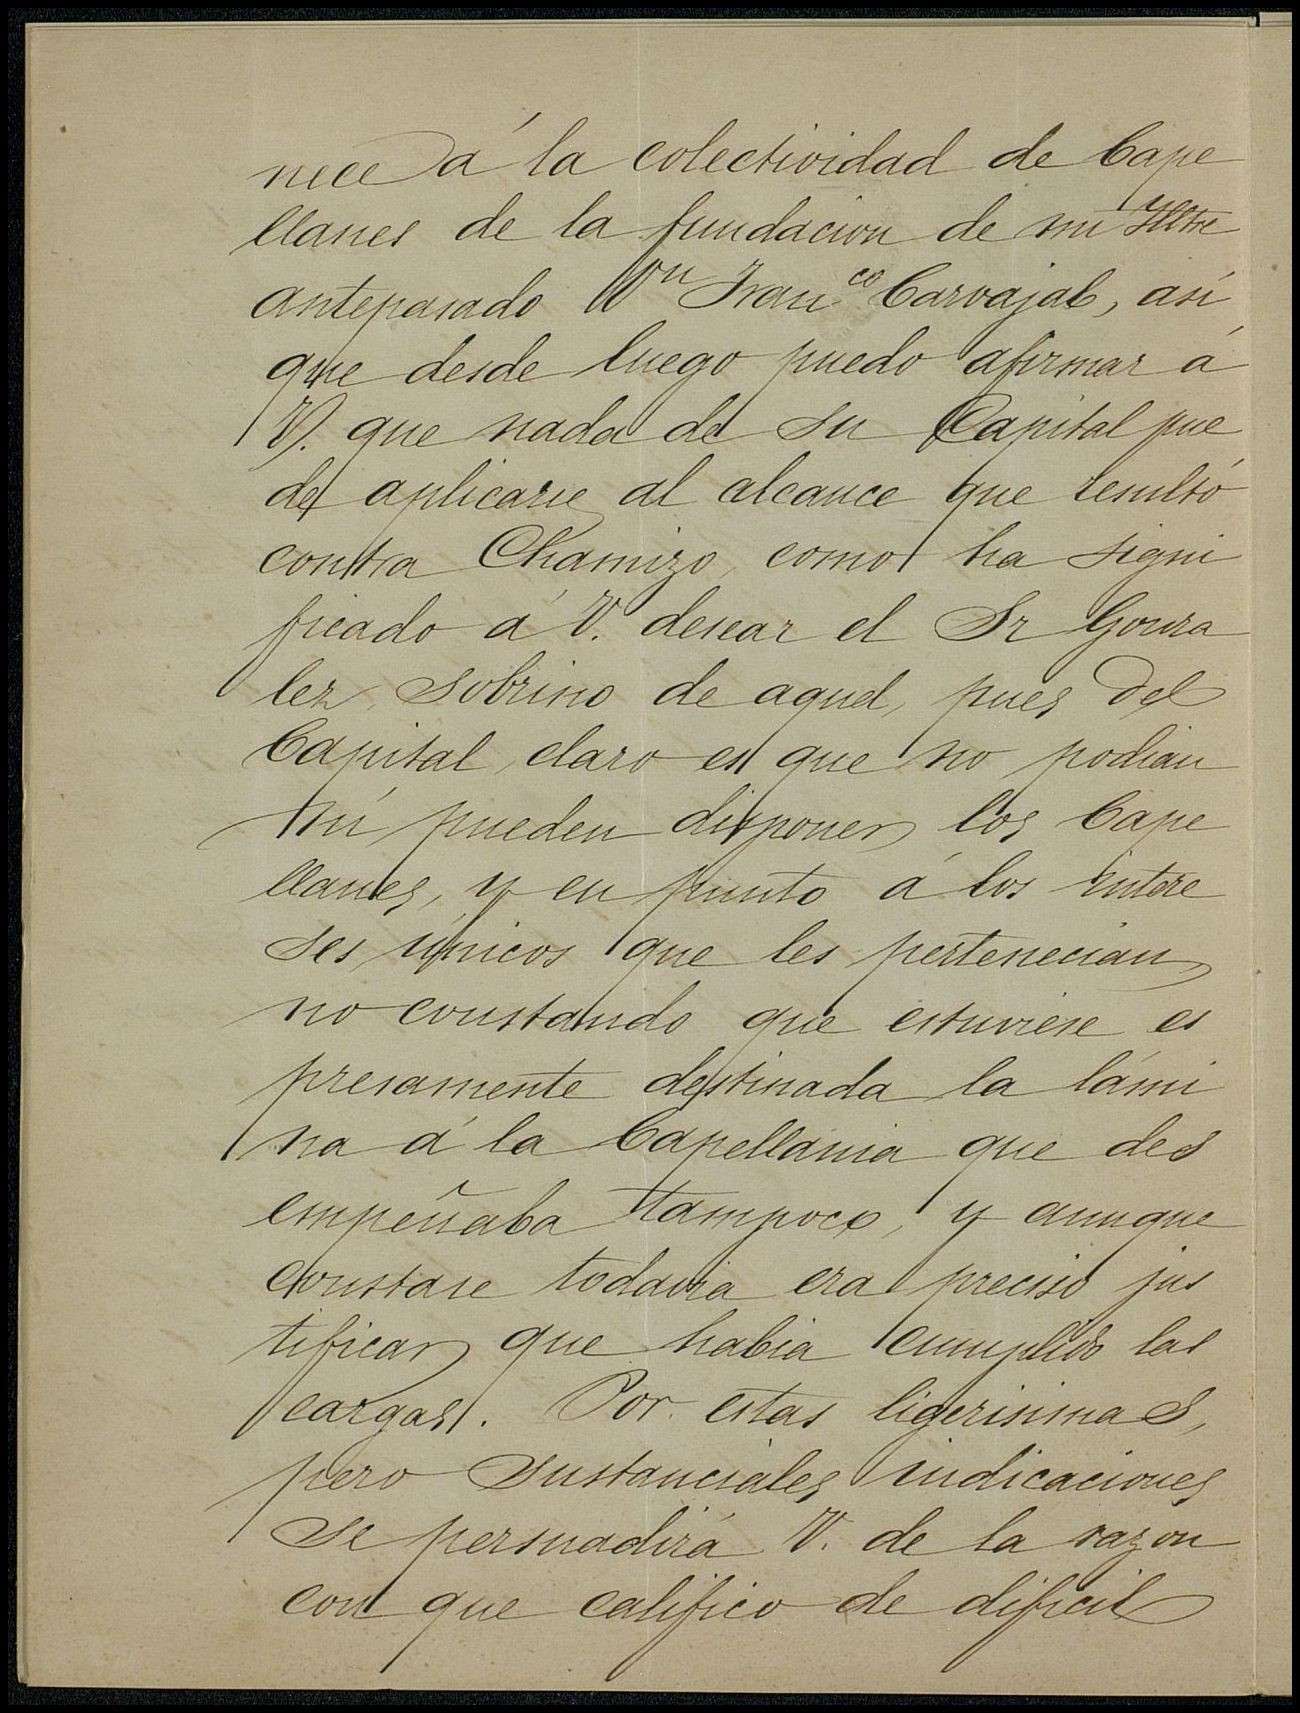 nece á la colectividad de Cape
llanes de la fundacion de mi Iltre
antepasado Dn Franco Carvajal, así
que desde luego puedo afirmar á
V. que nada de su Capital pue
de aplicarse al alcance que resultó
contra Chamizo, como ha signi
ficado á V. desear el Sr Gonza
lez, sobrino de aquel, pues del
Capital, claro es que no podian
ni pueden disponer los Cape
llanes, y en punto á los intere
ses, únicos que les pertenecian,
no constando que estuviese es
presamente destinada la lámi
na á la Capellania que des
empeñaba tampoco, y aunque
constase todavia era preciso jus
tificar que habia cumplido las
cargas. Por estas ligerisimas,
pero sustanciales indicaciones
se persuadirá V. de la razon
con que califico de dificil